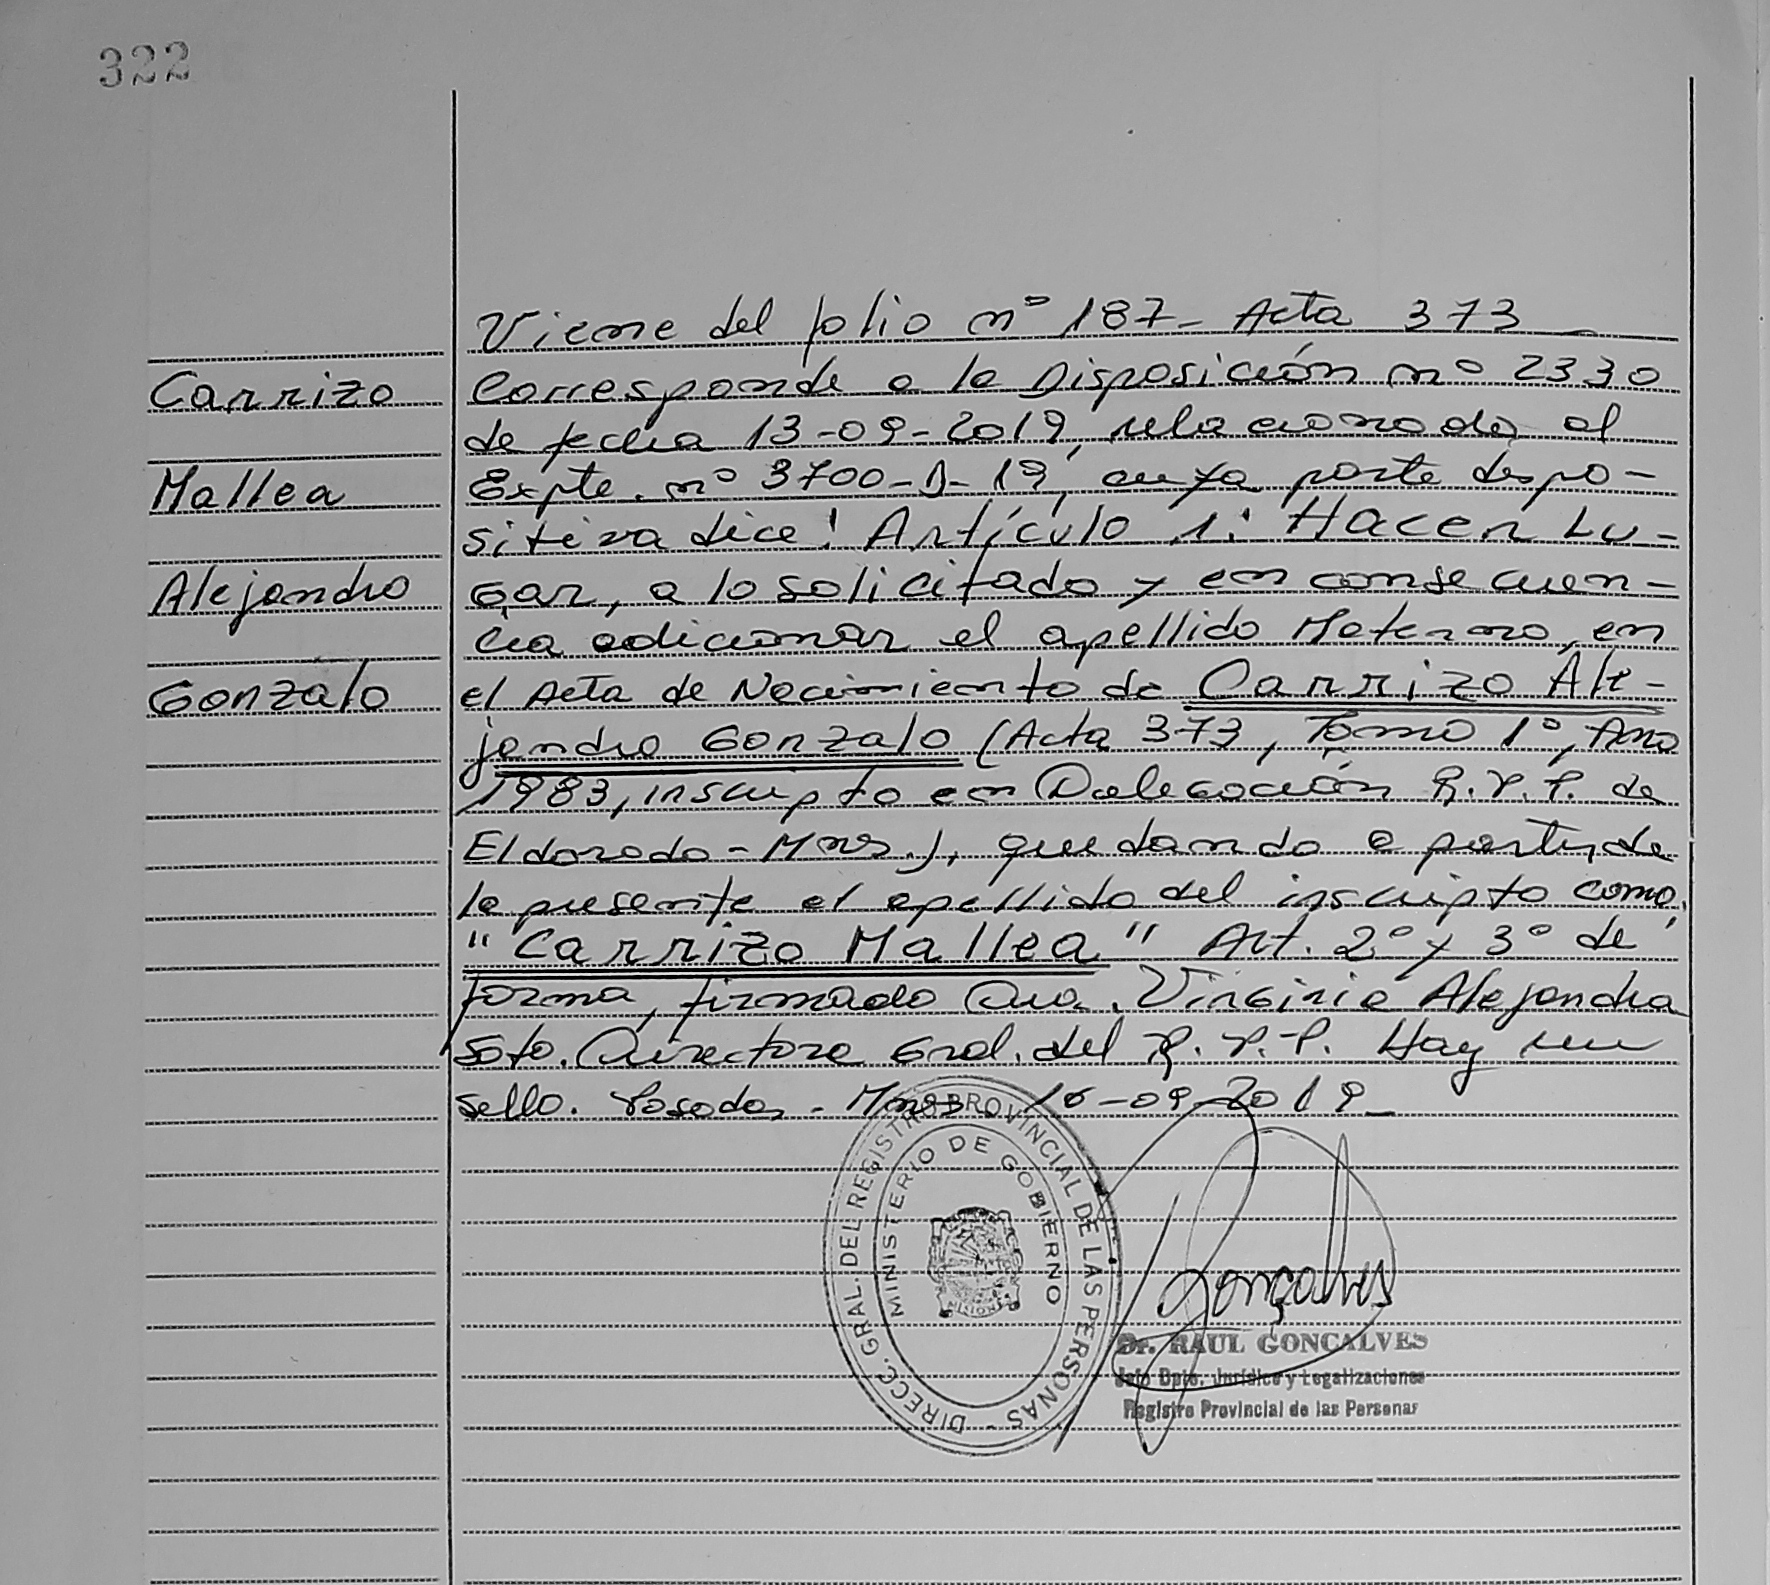 322
Viene del folio nº 187- Acta 373
Carrizo
Corresponde a la Disposición nº 2330
de fecha 13-09-2019, relacionada al
Mallea
Expte. nº 3700-D-19, cuya parte dispo-
sitiva dice: Artículo 1: Hacer Lu-
Alejandro
gar, a lo solicitado y en consecuen-
cia adicionar el apellido Materno, en
Gonzalo
el Acta de Nacimiento de Carrizo Ale-
jandro Gonzalo (Acta 373, Tomo 1º, Año
1983, inscripto en Delegación R.P.P. de
Eldorado-Mnes.), quedando a partir de
la presente el apellido del inscripto como,
"Carrizo Mallea" Art. 2º y 3º de
forma, firmado Dra. Virginia Alejandra
Soto. Directora Gral. del R.P.P. Hay un
sello. Posadas - Mnes 16-09-2019_
DIRECC. GRAL. DEL REGISTRO PROVINCIAL DE LAS PERSONAS -
MINISTERIO DE GOBIERNO
MISIONES
Gonçalves
Dr. RAUL GONCALVES
Jefe Dpto. Jurídico y Legalizaciones
Registro Provincial de las Personas